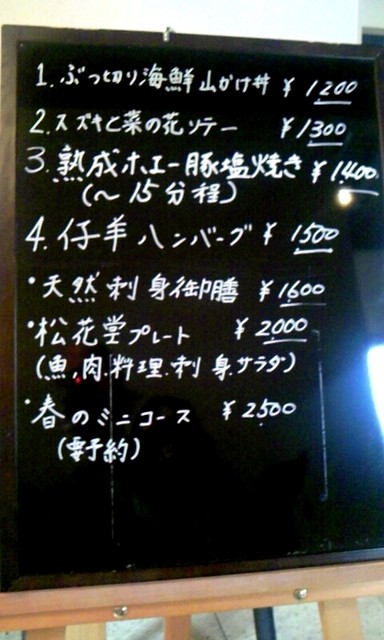 1.ぶつ切り海鮮山かけ丼 ¥1200
2.スズキと菜の花ソテー ¥1300
3.熟成ホエー豚塩焼き ¥1400
(〜15分程)
4.仔羊ハンバーグ ¥1500
・天然刺身御膳 ¥1600
・松花堂プレート ¥2000
(魚.肉.料理.刺身.サラダ)
・春のミニコース ¥2500
(要予約)